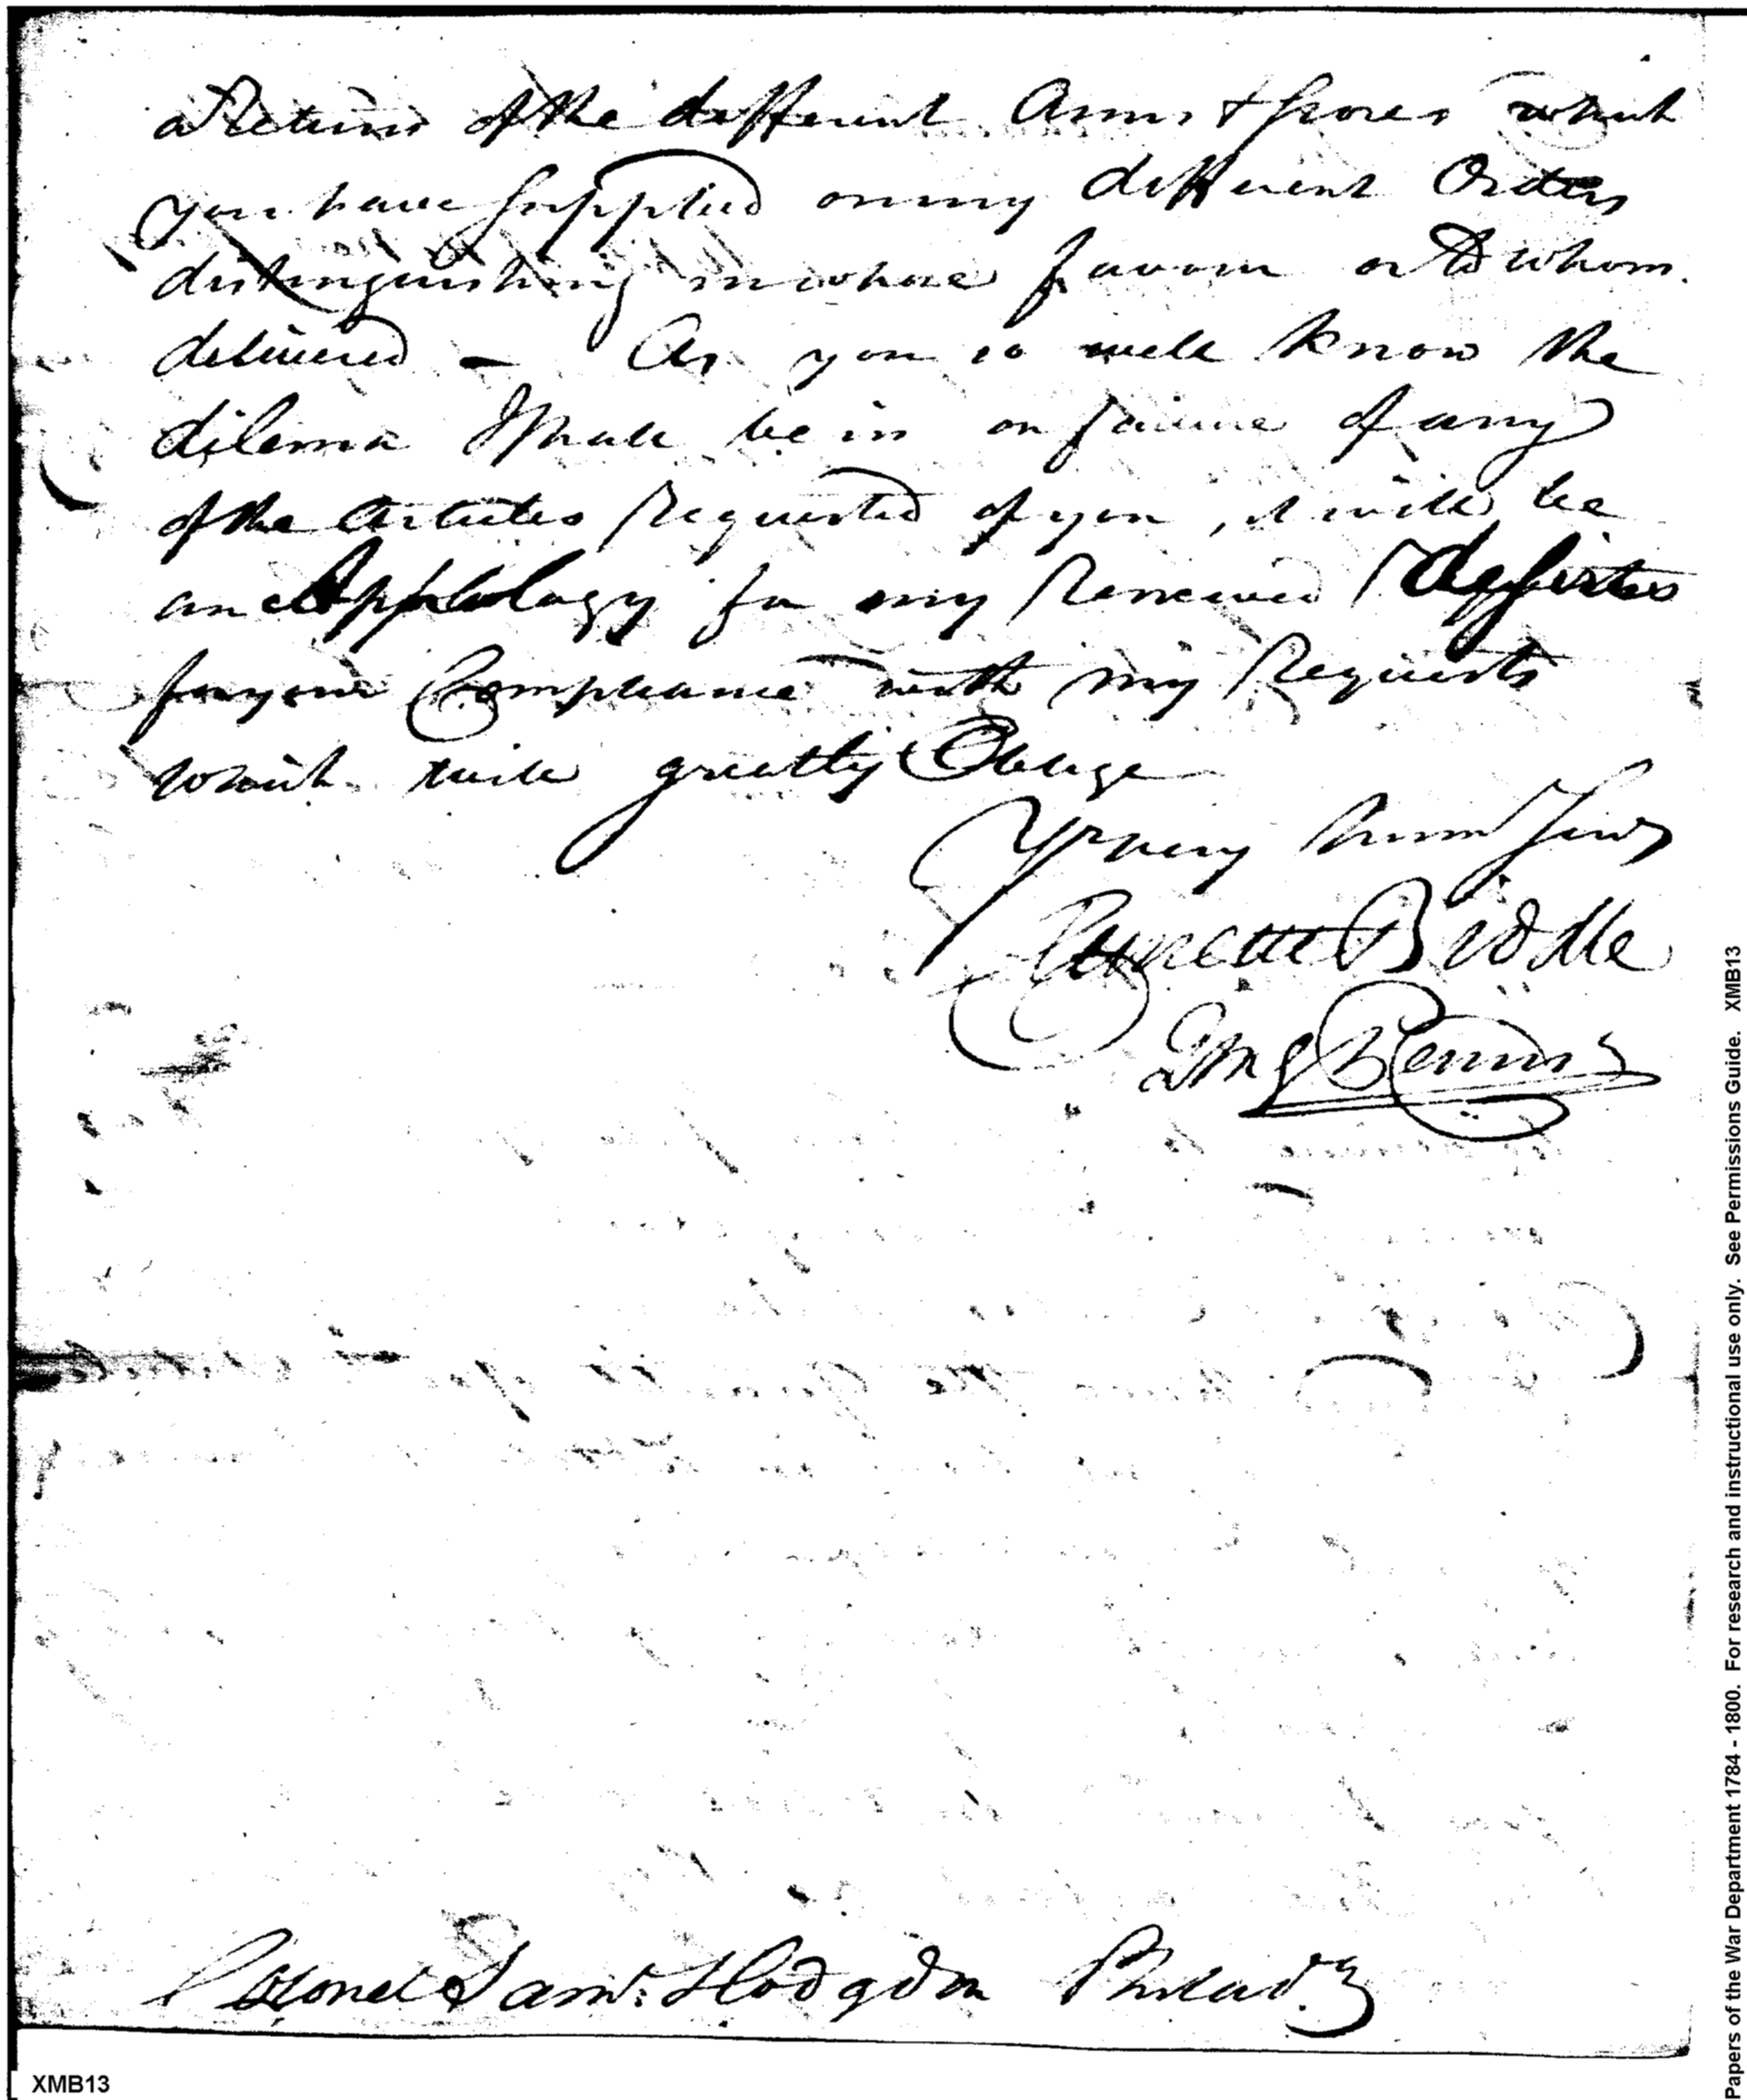 a Return of the different Arms & Stores which
you have Supplied on my different Orders
distinguishing in whose favour or to whom
delivered — As you so well know the
dilema I shall be in on failure of any
of the Articles Requested of you, it will be
an Appology for my Renewed
for your Compliance with my Requests
which will greatly Oblige
Yr very hum Serv
Clement Biddle
QMG Penns
Colonel Saml. Hodgdon Philada
Papers of the War Department 1784 - 1800. For research and instructional use only. See Permissions Guide. XMB13
XMB13